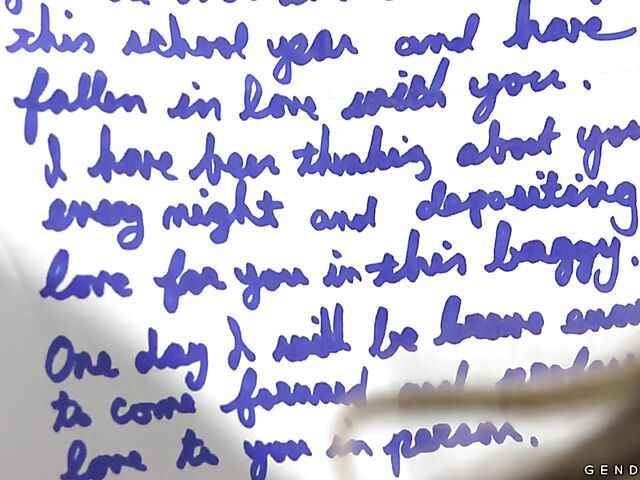 this school year and have
fallen in love with you.
I have been thinking about you
every night and depositing
love for you in this baggy.
One day I will be brave
to come forward and
love to you in person.
GEND